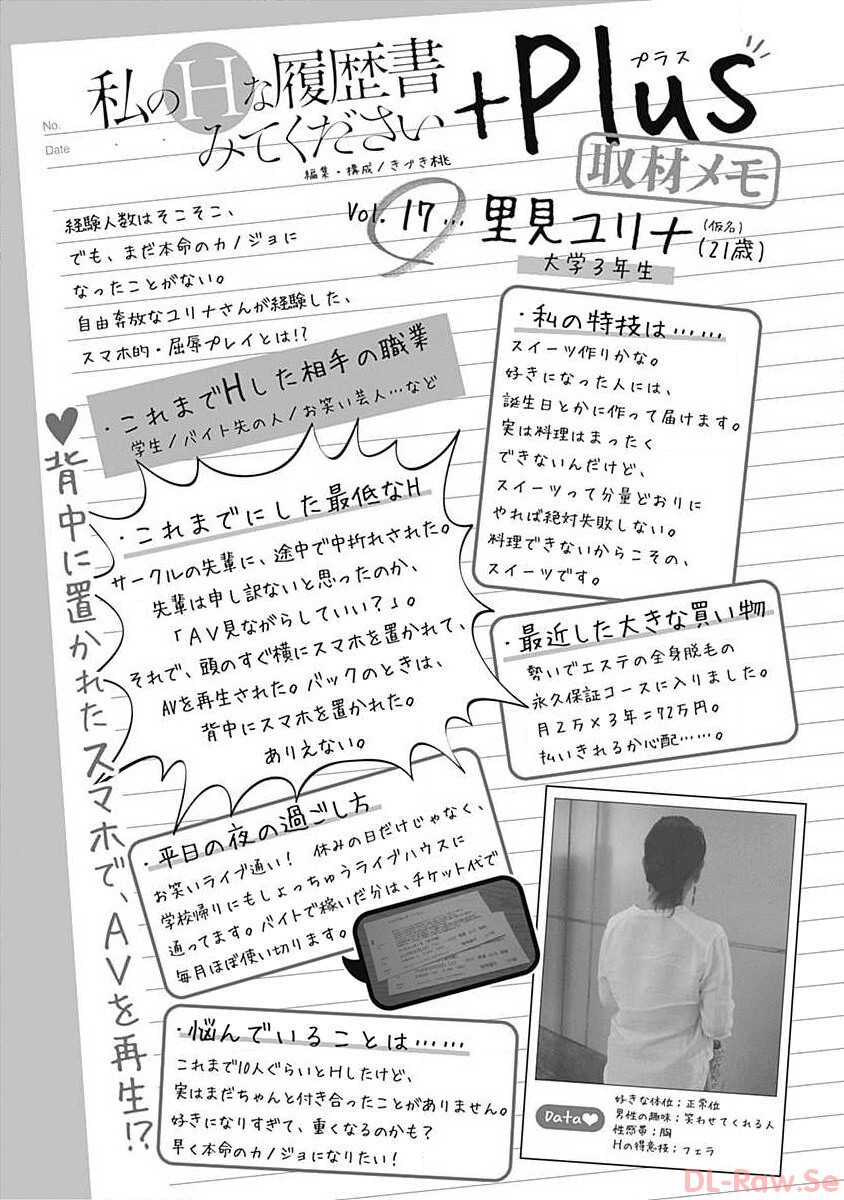 No.
Date
私のHな履歴書
みてください
+Plus
プラス
取材メモ
編集・構成/きづき桃
Vol. 17… 里見ユリナ (仮名) (21歳)
大学3年生
経験人数はそこそこ、
でも、まだ本命のカノジョに
なったことがない。
自由奔放なユリナさんが経験した、
スマホ的・屈辱プレイとは!?
・これまでHした相手の職業
学生/バイト先の人/お笑い芸人…など
♥背中に置かれたスマホで、AVを再生!?
・私の特技は……
スイーツ作りかな。
好きになった人には、
誕生日とかに作って届けます。
実は料理はまったく
できないんだけど、
スイーツって分量どおりに
やれば絶対失敗しない。
料理できないからこその、
スイーツです。
・これまでにした最低なH
サークルの先輩に、途中で中折れされた。
先輩は申し訳ないと思ったのか、
「AV見ながらしていい?」。
それで、頭のすぐ横にスマホを置かれて、
AVを再生された。バックのときは、
背中にスマホを置かれた。
ありえない。
・最近した大きな買い物
勢いでエステの全身脱毛の
永久保証コースに入りました。
月2万×3年=72万円。
払いきれるか心配……。
・平日の夜の過ごし方
お笑いライブ通い! 休みの日だけじゃなく、
学校帰りにもしょっちゅうライブハウスに
通ってます。バイトで稼いだ分は、チケット代で
毎月ほぼ使い切ります。
・悩んでいることは……
これまで10人ぐらいとHしたけど、
実はまだちゃんと付き合ったことがありません。
好きになりすぎて、重くなるのかも?
早く本命のカノジョになりたい!
Data♥
好きな体位;正常位
男性の趣味;笑わせてくれる人
性感帯;胸
Hの得意技;フェラ
DL-Raw.Se